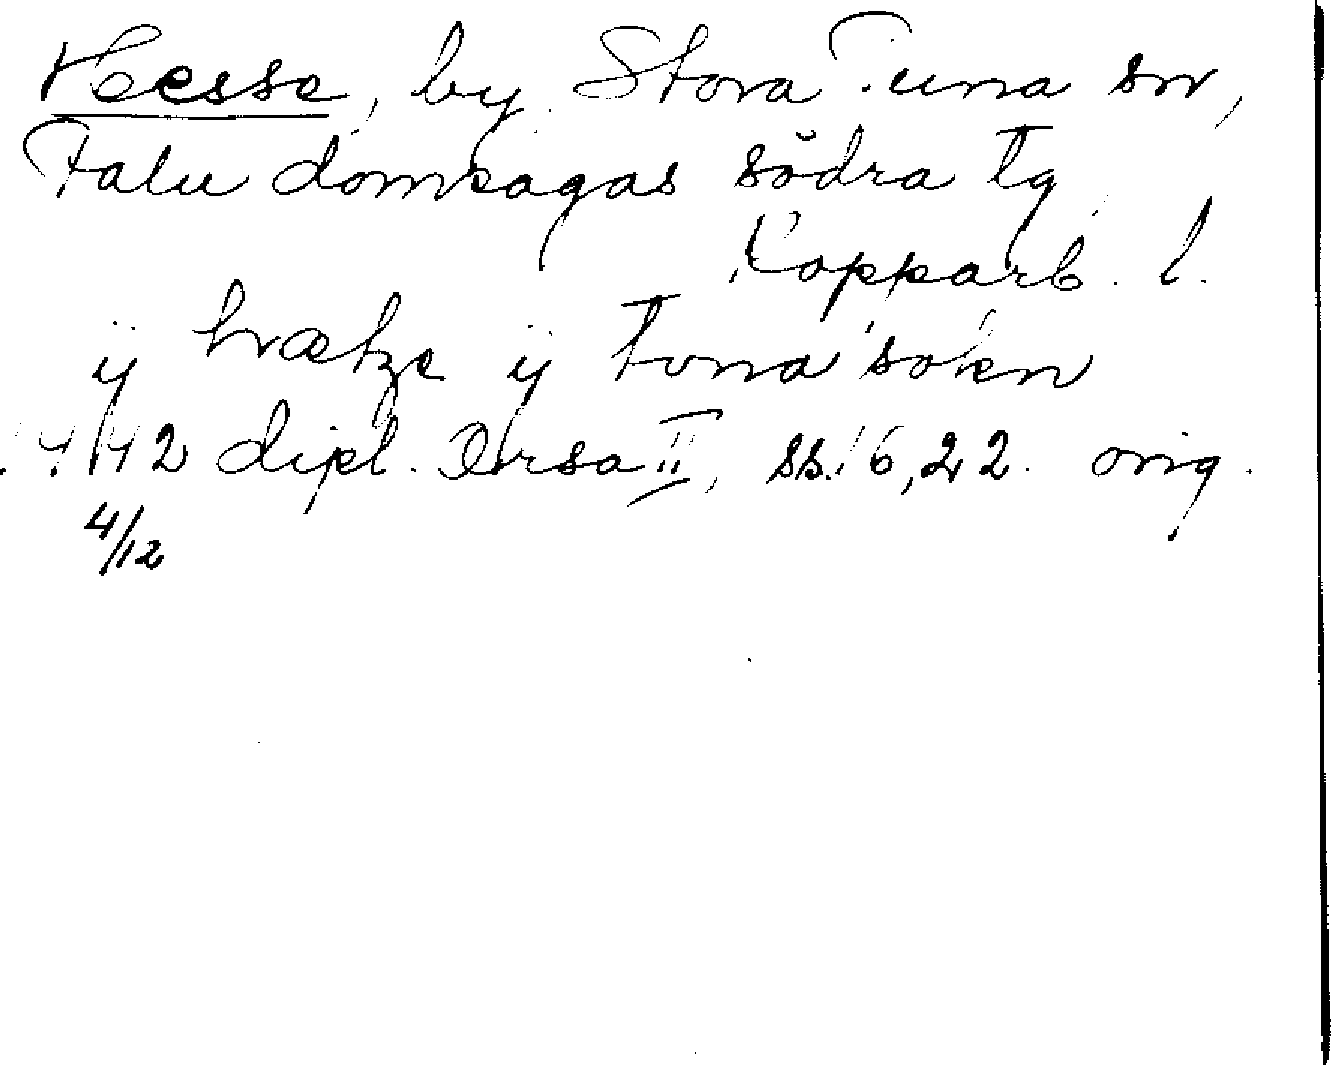 Hesse, by. Stora Tuna sn,
Falu domsagas södra tg,
Kopparb. l.
ÿ hrætze ÿ Tuna sokn
1442 dipl. Orsa II, ss. 16, 22. orig.
4/12